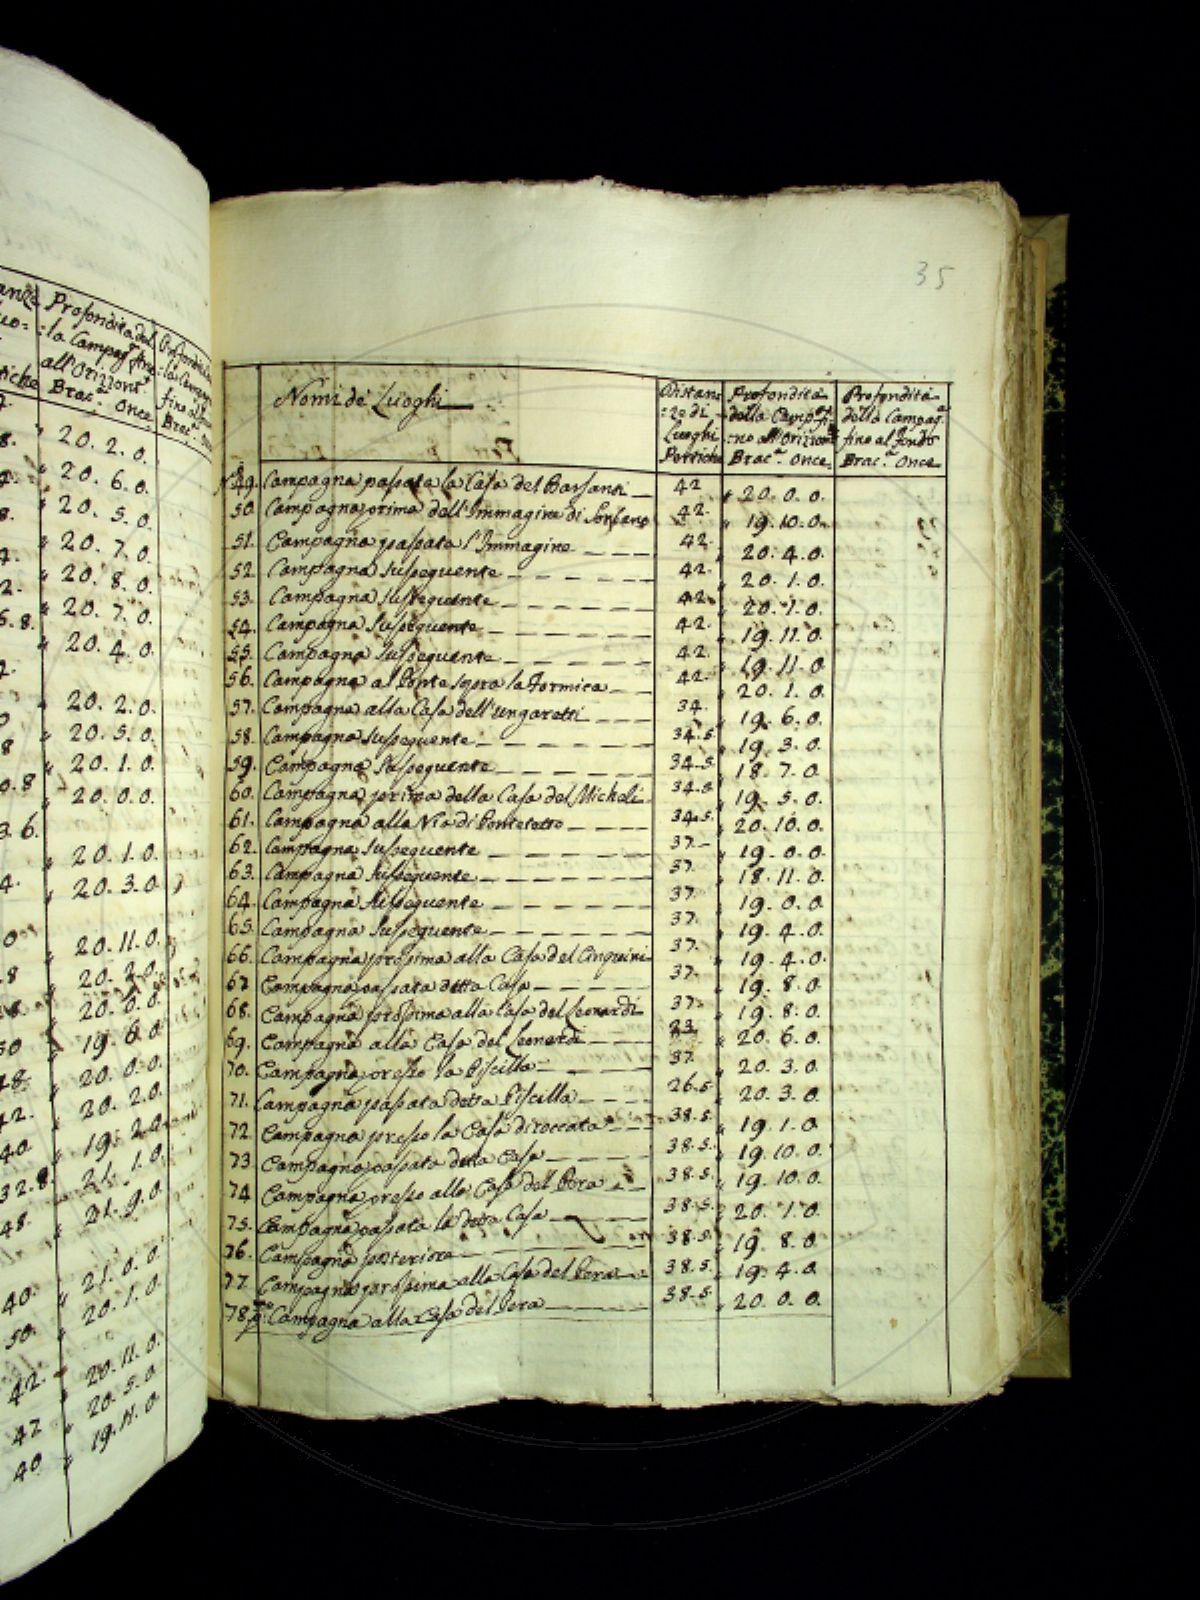 anza Profondità del Profondità
uo= =la Campagª. fino =la Campag
all'Orizontᵉ. fino al fon
rtiche Bracª. Once Bracª. On
8. 20. 2. 0.
20. 6. 0.
8. 20. 5. 0.
4. 20. 7. 0.
2. 20. 8. 0.
5.8. 20. 7. 0.
20. 4. 0.
20. 2. 0.
8 20. 5. 0.
0.8 20. 1. 0.
20. 0. 0.
3.6.
20. 1. 0.
4. 20. 3. 0
0 20. 11. 0.
.8 20. 2. 0.
20. 0. 0.
50 19. 8. 0
48. 20. 0. 0.
42. 20. 2. 0.
40. 19. 2. 0
32.8. 21. 1. 0
48. 21. 9. 0.
40. 21. 0. 0
50. 20. 1. 0.
42. 20. 11. 0.
47 20. 5. 0
40 19. 11. 0
35
Nomi de' Luoghi
Distan= Profondità Profondità
=ze di della Campª. fi= della Campagª.
Luoghi =no all'Orizonᵉ fino al fondo
Pertiche Bracª. Once Bracª. Once
49. Campagna passata la Casa del Barsanti 42 20. 0. 0.
50. Campagna prima dell'Immagine di Sorbano 42. 19. 10. 0.
51. Campagna passata l'Immagine 42. 20. 4. 0.
52. Campagna susseguente 42. 20. 1. 0.
53. Campagna susseguente 42. 20. 1. 0.
54. Campagna susseguente 42. 19. 11. 0.
55. Campagna susseguente 42. 19. 11. 0
56. Campagna al Ponte sopra la Formica 42. 20. 1. 0.
57. Campagna alla Casa dell'Ungaretti 34. 19. 6. 0.
58. Campagna susseguente 34.5 19. 3. 0.
59. Campagna susseguente 34.5 18. 7. 0.
60. Campagna prima della Casa del Micheli 34.5 19. 5. 0.
61. Campagna alla Via di Pontetetto 34.5. 20. 10. 0.
62. Campagna susseguente 37. 19. 0. 0.
63. Campagna susseguente 37. 18. 11. 0.
64. Campagna susseguente 37. 19. 0. 0.
65. Campagna susseguente 37. 19. 4. 0.
66. Campagna prossima alla Casa del Cinquini 37. 19. 4. 0.
67 Campagna passata detta Casa 37. 19. 8. 0.
68. Campagna prossima alla Casa del Leonardi 37. 19. 8. 0.
69. Campagna alla Casa del Leonardi 23. 20. 6. 0.
70. Campagna presso la Piscilla 37. 20. 3. 0.
71. Campagna passata detta Piscilla 26.5 20. 3. 0.
72. Campagna presso la Casa diroccata 38.5. 19. 1. 0
73 Campagna passata detta Casa 38.5. 19. 10. 0.
74 Campagna presso alla Casa del Pera 38.5. 19. 10. 0.
75. Campagna passata la detta Casa 38.5. 20. 1. 0.
76. Campagna posteriore 38.5. 19. 8. 0.
77. Campagna prossima alla Casa del Pera 38.5. 19. 4. 0.
78. Campagna alla Casa del Pera 38.5. 20. 0. 0.